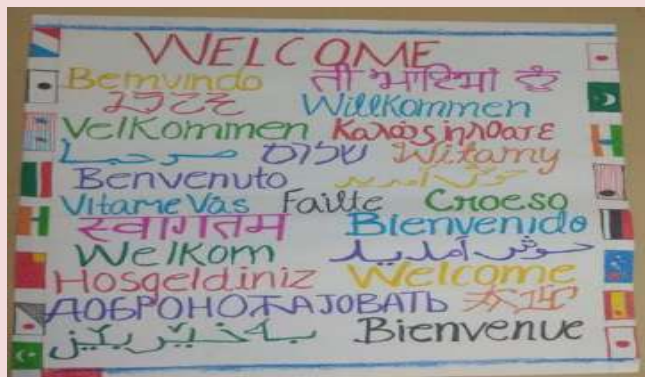 WELCOME
Bemvindo ਜੀ ਆਇਆਂ ਨੂੰ
Willkommen
Velkommen Καλώς ηλθατε
مرحبا שלום Witamy
Benvenuto خوش آمدید
Vitame Vás Failte Croeso
स्वागतम Bienvenido
Welkom خوش آمدید
Hosgeldiniz Welcome
ДОБРОПОЖАЛОВАТЬ
Bienvenue